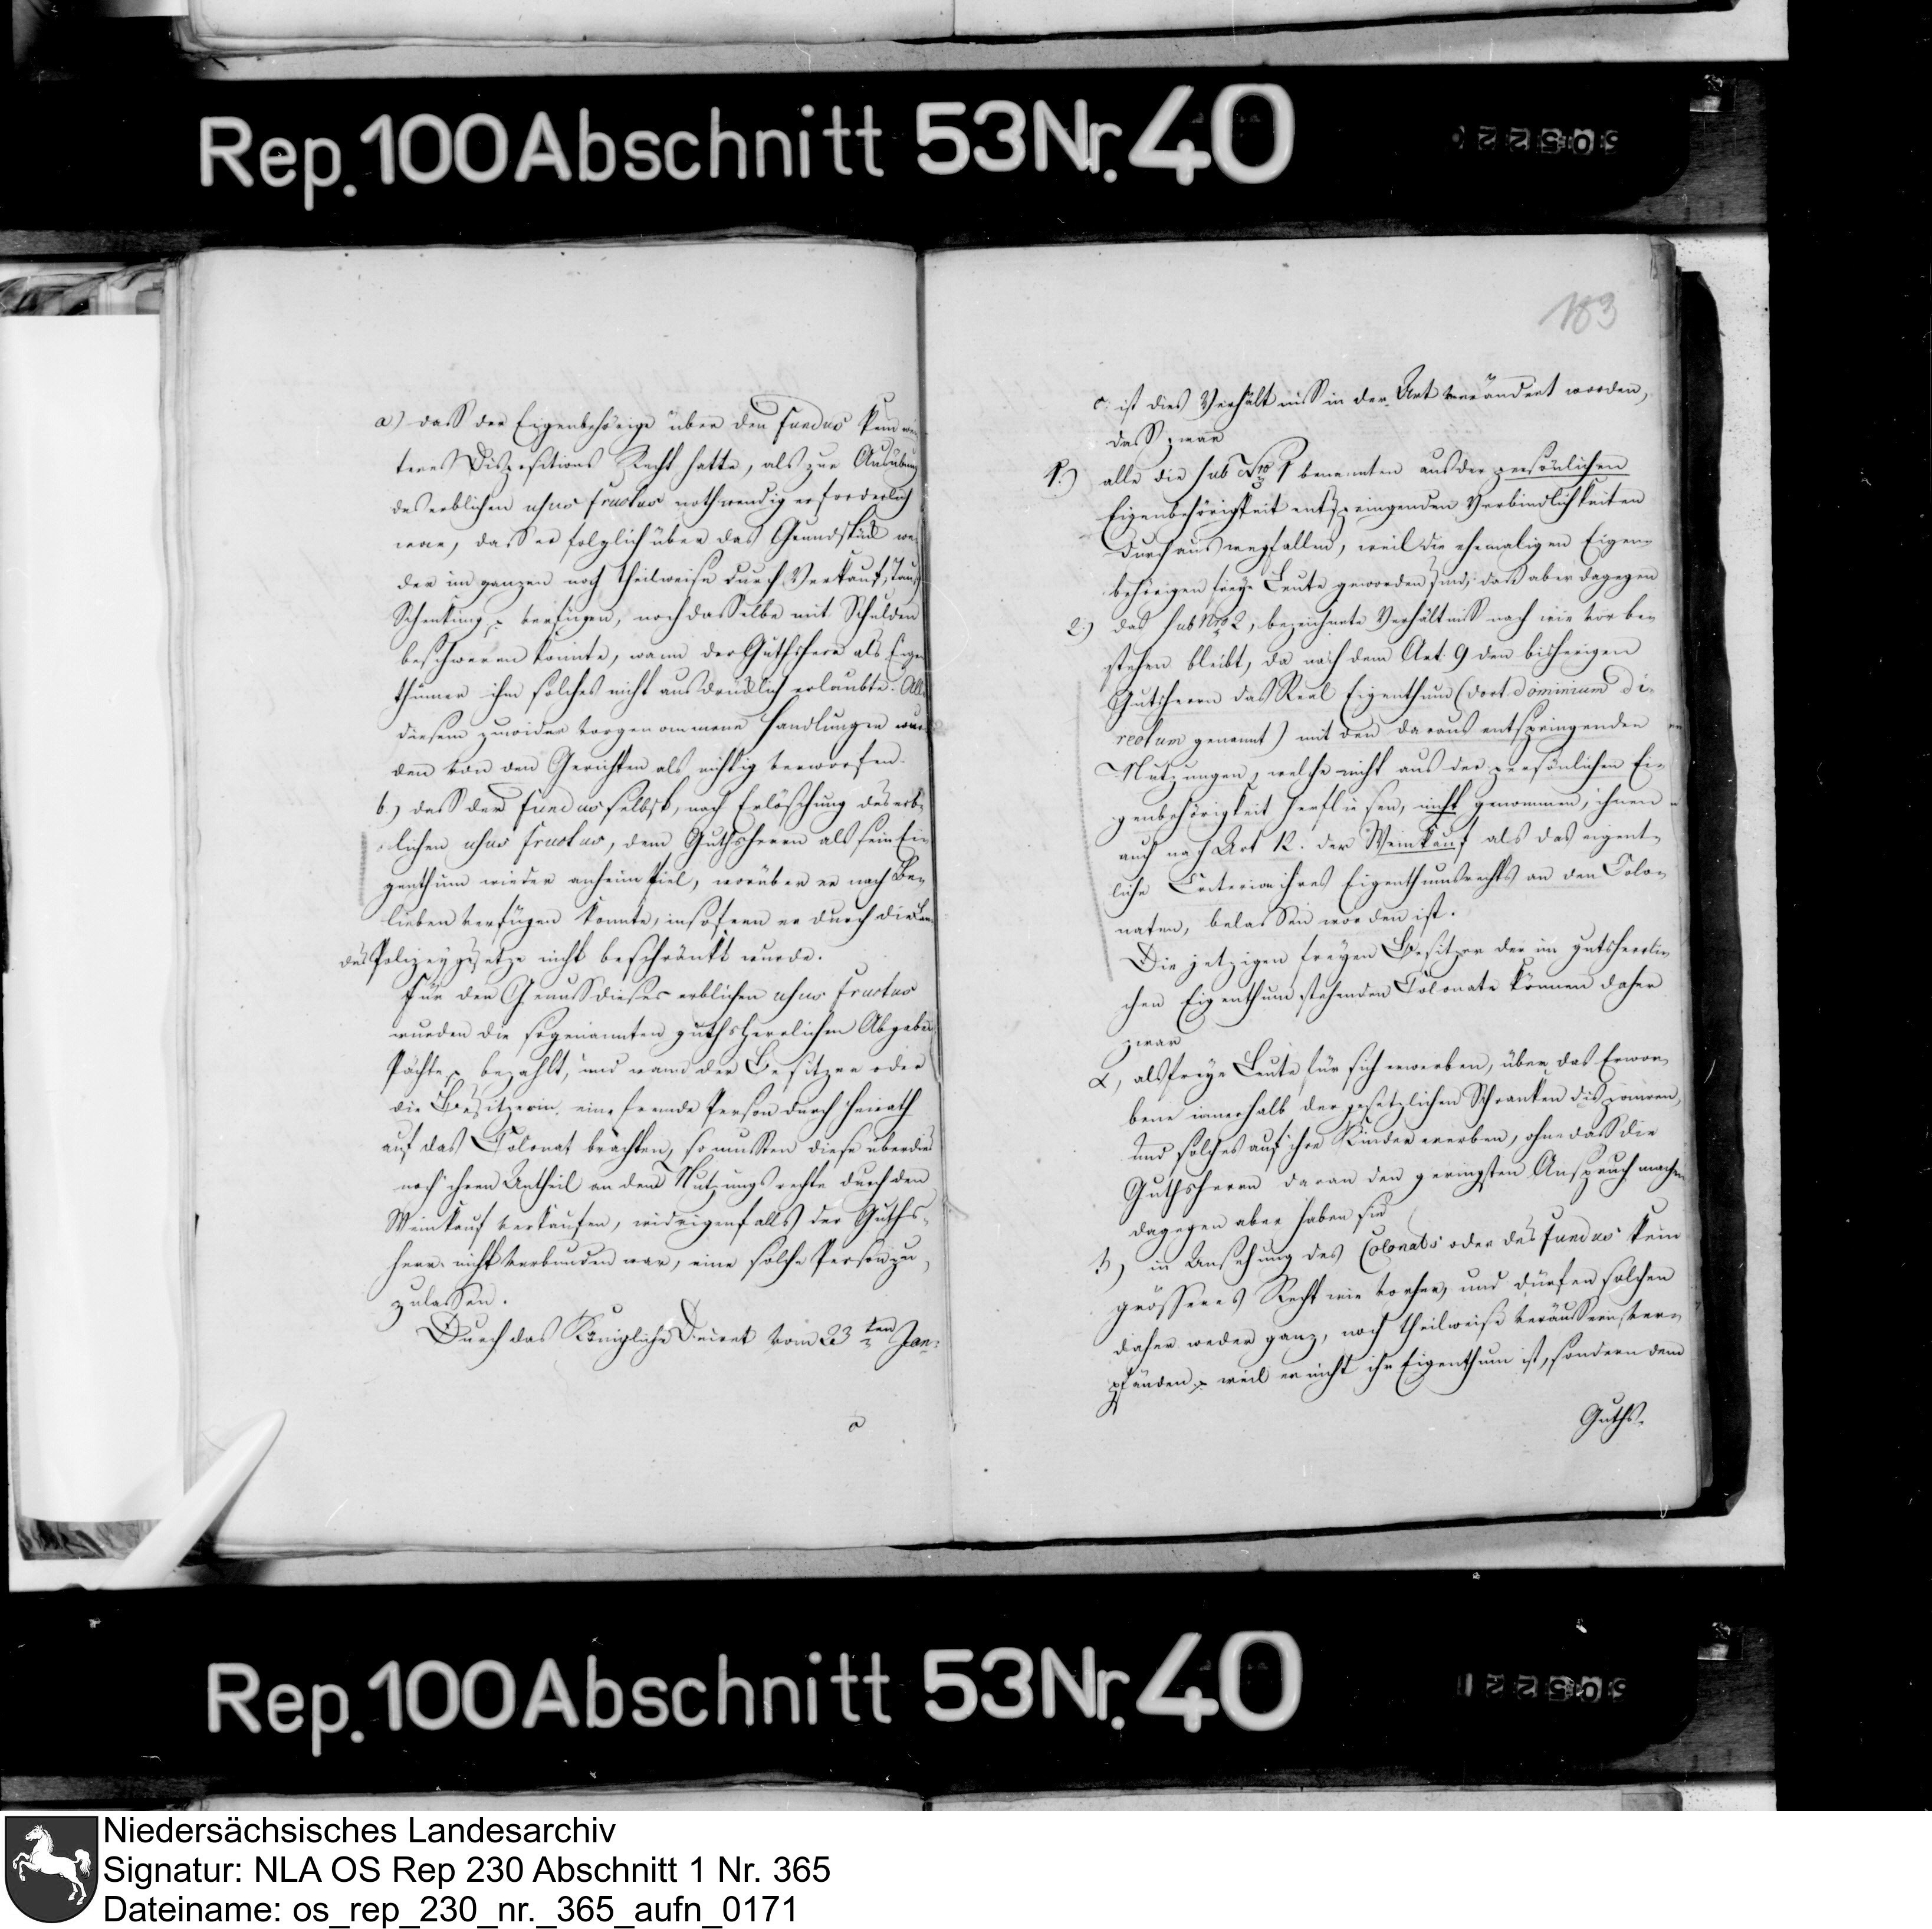 Rep. 100 Abschnitt 53 Nr. 40
a) daß der Eigenbehörige über den Fundus kein wei-
teres Dispositions Recht hatte, als zur Ausübung
des erblichen usus fructus nothwendig erforderlich
war, daß er folglich über das Grundstück we-
der im ganzen noch theilweise durch Verkauf, Tausch
Schenkung verfügen, noch dasselbe mit Schulden
beschweren konnte, wann der Guthsherr als Eigen
thümer ihm solches nicht ausdrücklich erlaubte. Alle
diesem zuwider vorgenommene Handlungen wur-
den von den Gerichten als nichtig verworfen.
b.) daß der Fundus selbst, nach Erlöschung des erb-
lichen usus fructus, dem Guthsherrn als sein Ei-
genthum wieder anheim fiel, worüber er nach Be-
lieben verfügen konnte, insofern er durch die Lan-
des Polizeygesetze nicht beschränkt wurde.
Für den Genuß dieses erblichen usus fructus
wurden die sogenannten guthsherrlichen Abgaben
Pächte bezahlt, und wann der Besitzer oder
die Besitzerin eine fremde Person durch Heirath
auf das Colonat brachten, so mußten diese überdies
noch ihren Antheil an dem Nutzungsrechte durch den
Weinkauf erkaufen, widrigenfalls der Guths-
herr nicht verbunden war, eine solche Person zu-
zulassen.
Durch das Königliche Decret vom 23ten Jan:
183
c. ist dies Verhältniß in der Art verändert worden,
daß zwar
1.) alle die sub Nro 1 benannten aus der persönlichen
Eigenbehörigkeit entspringenden Verbindlichkeiten
durchaus wegfallen, weil die ehemaligen Eigen-
behörigen freye Leute geworden sind; daß aber dagegen
2.) das sub Nro 2, bezeichnete Verhältniß nach wie vor be-
stehen bleibt, da nach dem Art. 9 den bisherigen
Gutsherrn das Real Eigenthum (dort dominium di-
rectum genannt) mit den daraus entspringenden
Nutzungen, welche nicht aus der persönlichen Ei-
genbehörigkeit herfließen, nicht genommen, ihnen
auch nach Art 12. der Weinkauf als das eigent-
liche Criterion ihres Eigenthumsrechts an den Colo-
naten, belassen worden ist.
Die jetzigen freyen Besitzer der im gutsherrli-
chen Eigenthum stehenden Colonate können daher
zwar
α, als freye Leute für sich erwerben, über das Erwor-
bene innerhalb der gesetzlichen Schranken disponiren,
und solches auf ihre Kinder vererben, ohne daß die
Guthsherrn daran den geringsten Anspruch machen
dagegen aber haben sie
β, in Ansehung des Colonats oder des Fundus kein
größeres Recht wie vorher, und dürfen solchen
daher weder ganz, noch theilweise veräußern, ver-
pfänden weil er nicht ihr Eigenthum ist, sondern dem
Guths-
Rep. 100 Abschnitt 53 Nr. 40
Niedersächsisches Landesarchiv
Signatur: NLA OS Rep 230 Abschnitt 1 Nr. 365
Dateiname: os_rep_230_nr._365_aufn_0171